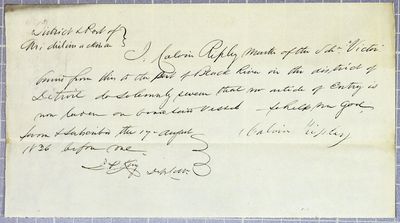 District & Port of
Michilimackinac
I, Calvin Ripley Master of the Schr Victor
bound from this to the Port of Black River in the district of
Detroit do solemnly swear that no article of Entry is
now laden on board said Vessel so help me God
Sworn & Subscribed this 17 August
1836 before me
Calvin Ripley